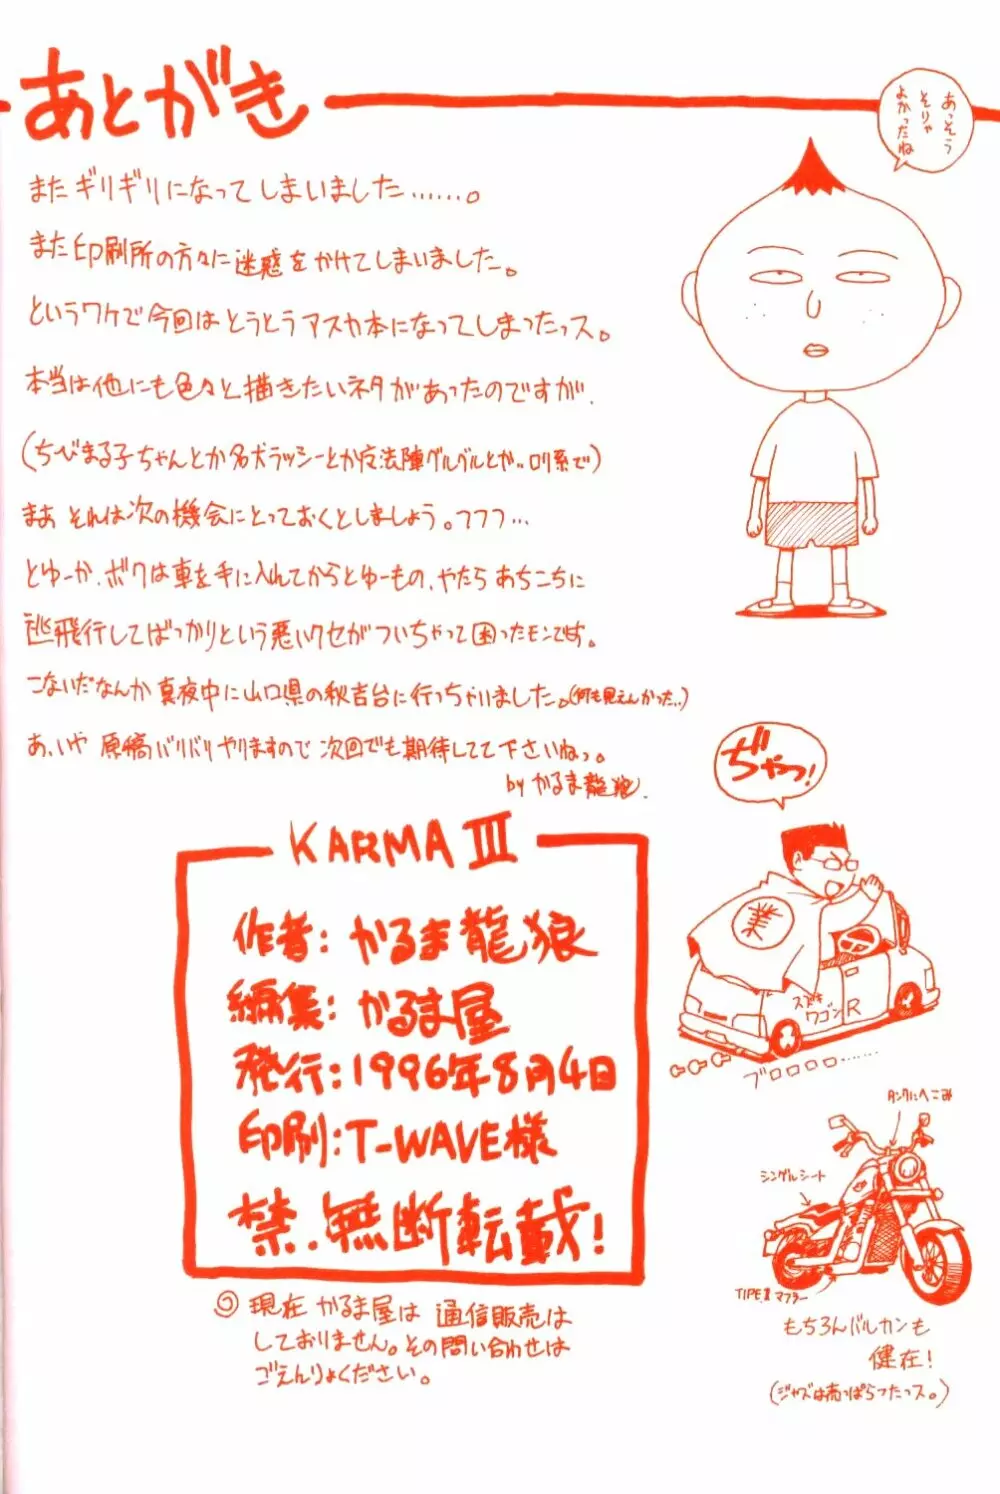 あとがき
あっそう
そりゃ
よかったね
またギリギリになってしまいました……。
また印刷所の方々に迷惑をかけてしまいました。
というワケで今回はとうとうアスカ本になってしまったっス。
本当は他にも色々と描きたいネタがあったのですが、
(ちびまる子ちゃんとか名犬ラッシーとか魔法陣グルグルとか、ロリ系で)
まあ それは次の機会にとっておくとしましょう。フフフ…
とゆーか、ボクは車を手に入れてからとゆーもの、やたらあちこちに
逃飛行してばっかりという悪いクセがついちゃって困ったモンです。
こないだなんか真夜中に山口県の秋吉台に行っちゃいました。(何も見えんかった…)
あ、いや 原稿バリバリやりますので 次回でも期待してて下さいねっ。
by かるま龍狼
ぢゃっ!
KARMA III
作者: かるま龍狼
編集: かるま屋
発行: 1996年8月4日
印刷: T-WAVE様
禁.無断転載!
現在 かるま屋は 通信販売は
しておりません。その問い合わせは
ごえんりょください。
業
スズキ
ワゴンR
ブロロロロ……
タンクにへこみ
シングルシート
マフラー
もちろんバルカンも
健在!
(ジャズは売っぱらったっス。)